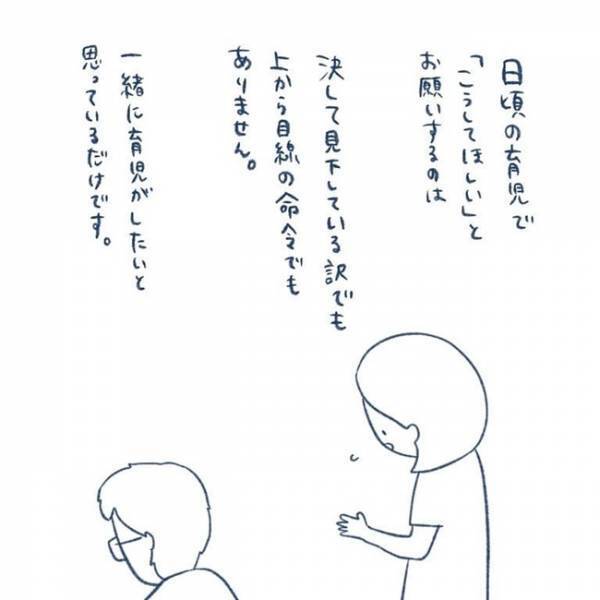 日頃の育児で
「こうしてほしい」と
お願いするのは
決して見下している訳でも
上から目線の命令でも
ありません。
一緒に育児がしたいと
思っているだけです。